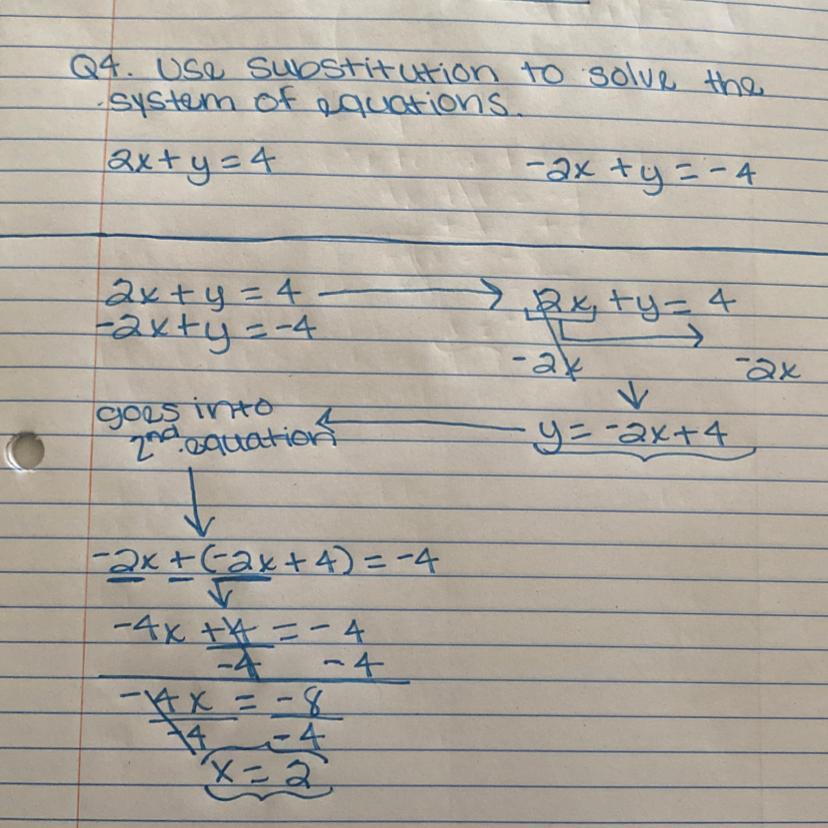 Q4. Use substitution to solve the
system of equations.
2x + y = 4 -2x + y = -4
2x + y = 4 → 2x + y = 4
-2x + y = -4
-2x -2x
goes into
2nd equation ← y = -2x + 4
-2x + (-2x + 4) = -4
-4x + 4 = -4
-4 -4
-4x = -8
-4 -4
x = 2